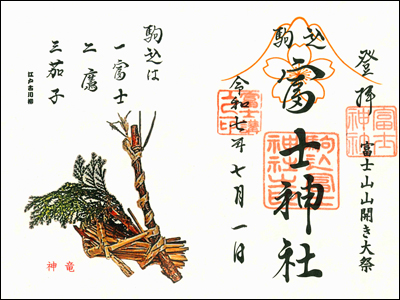 登拝
富士山山開き大祭
駒込
富士神社
令和七年七月一日
駒込は
一富士
二鷹
三茄子
江戸古川柳
神竜